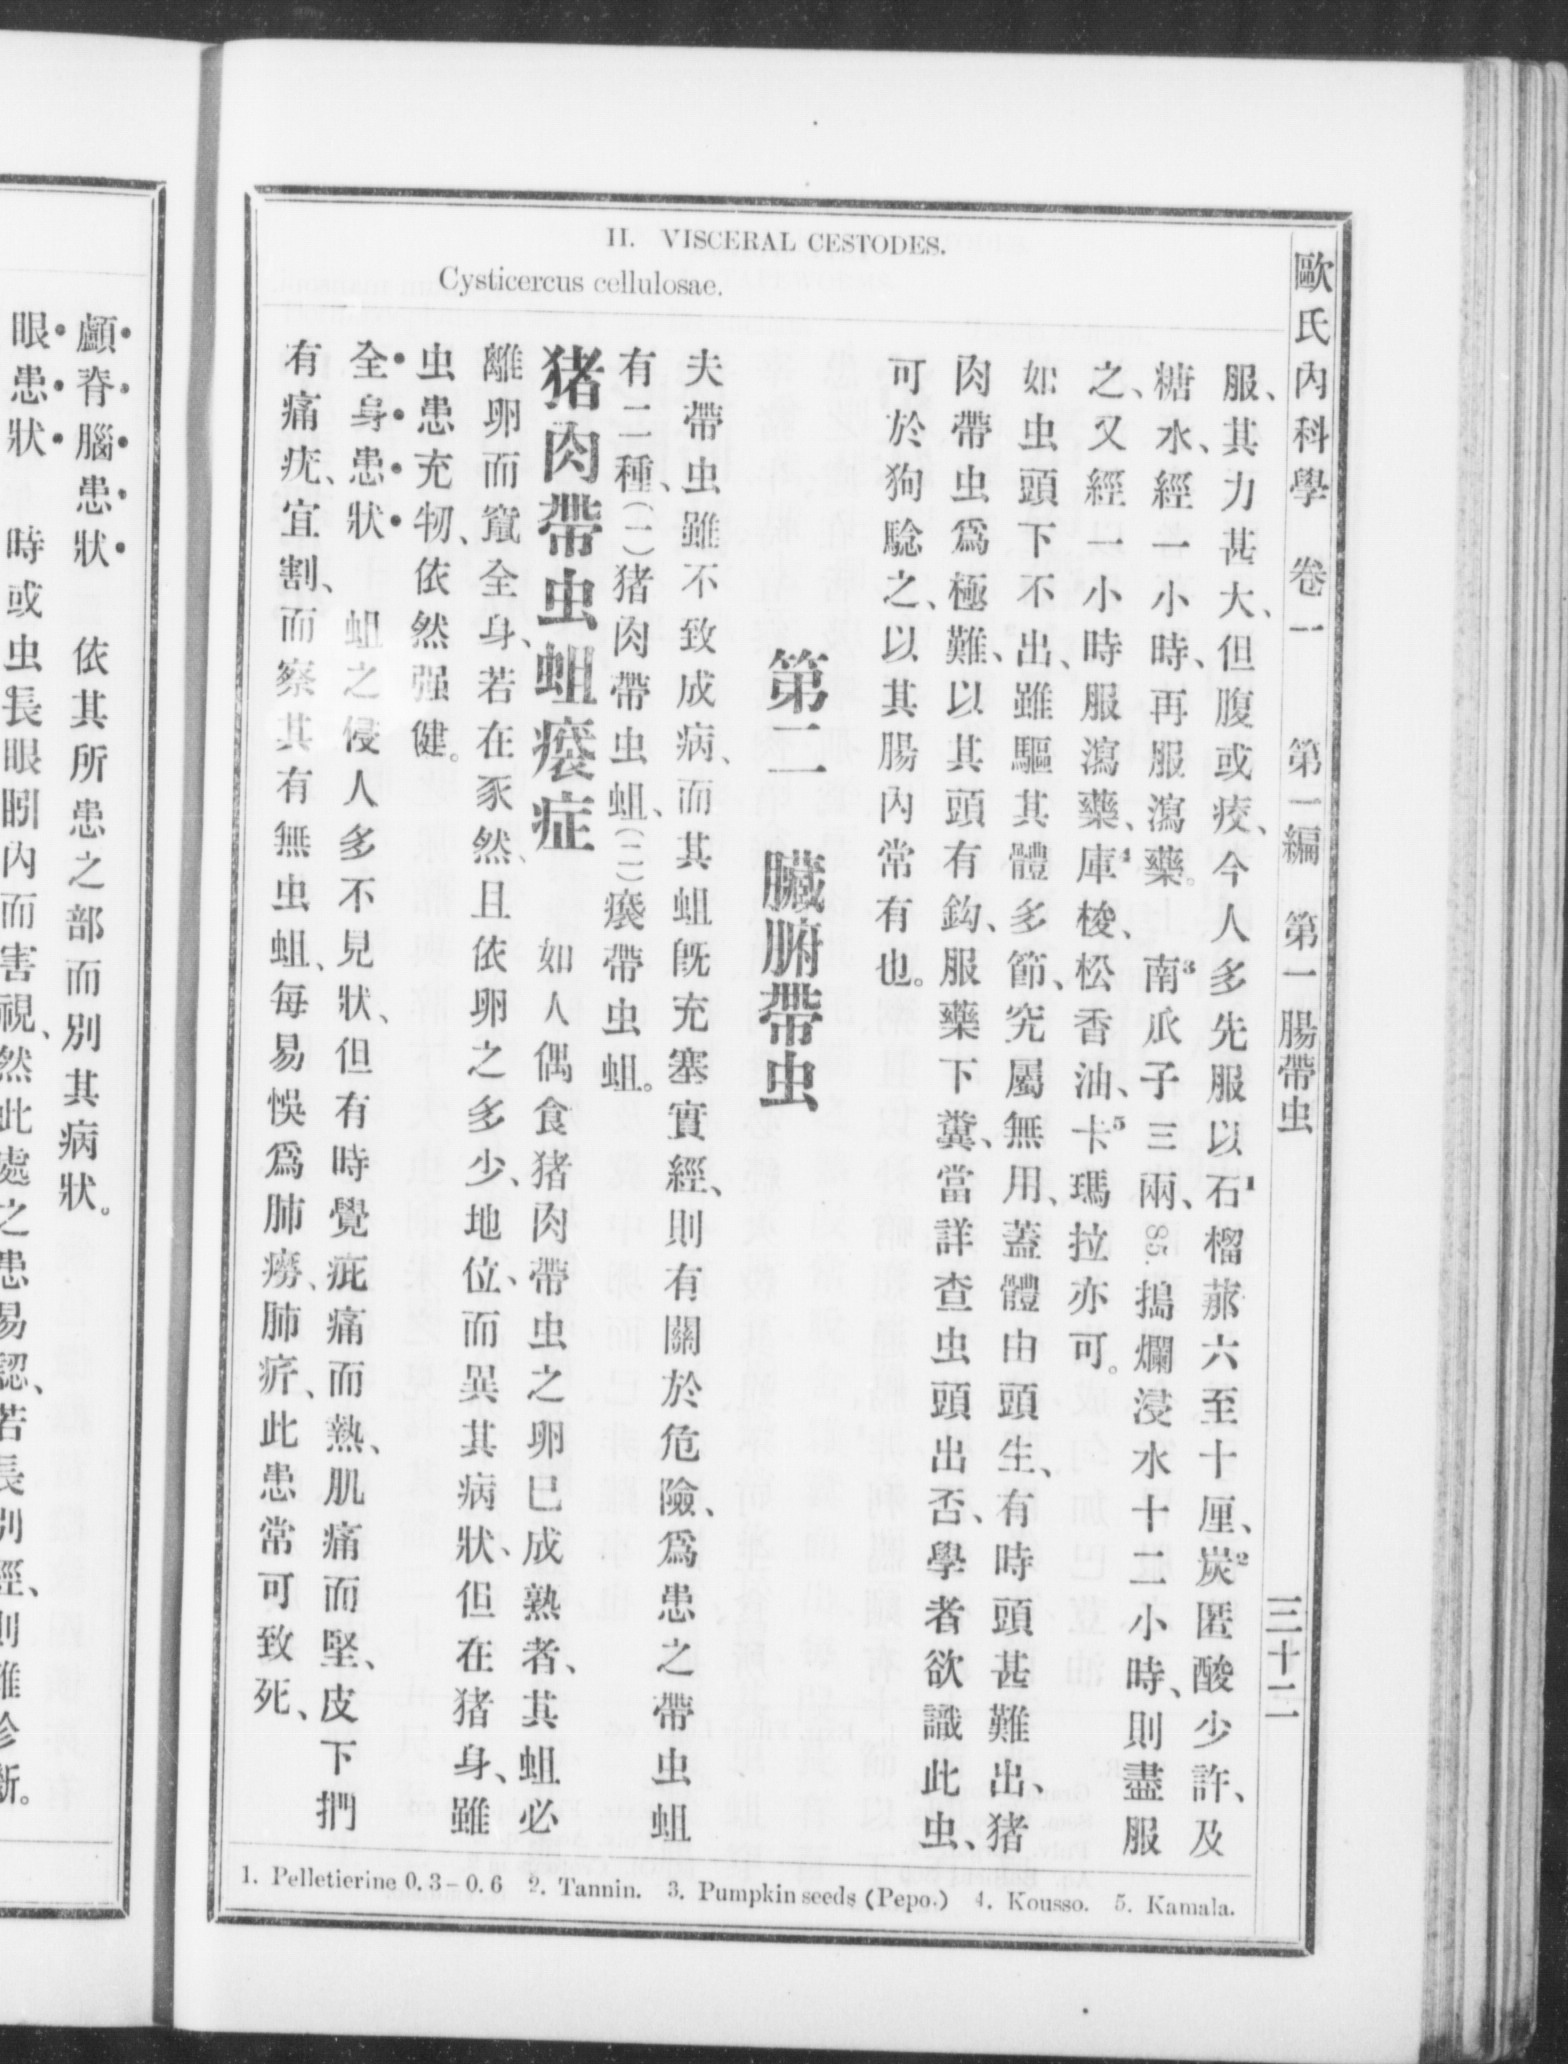 II. VISCERAL CESTODES.
Cysticercus cellulosae.
歐氏內科學 卷一 第一編 第一腸帶虫 三十二
服、其力甚大、但腹或疼、今人多先服以石1榴𦵏六至十厘、炭2匿酸少許、及
糖水、經一小時、再服瀉藥。南3瓜子三兩、85.搗爛浸水十二小時、則盡服
之、又經一小時服瀉藥、庫4梭、松香油、卡5瑪拉亦可。
如虫頭下不出、雖驅其體多節、究屬無用、蓋體由頭生、有時頭甚難出、猪
肉帶虫爲極難、以其頭有鈎、服藥下糞、當詳查虫頭出否、學者欲識此虫、
可於狗騐之、以其腸內常有也。
第二 臟腑帶虫
夫帶虫雖不致成病、而其蛆旣充塞實經、則有關於危險、爲患之帶虫蛆
有二種、(一)猪肉帶虫蛆、(二)㿈帶虫蛆。
猪肉帶虫蛆㿈症 如人偶食猪肉帶虫之卵已成熟者、其蛆必
離卵而竄全身、若在豕然、且依卵之多少、地位、而異其病狀、但在猪身、雖
虫患充牣、依然强健。
全身患狀 蛆之侵人多不見狀、但有時覺疵痛而熱、肌痛而堅、皮下捫
有痛疣、宜割、而察其有無虫蛆、每易悞爲肺癆、肺疔、此患常可致死、
1. Pelletierine 0.3-0.6 2. Tannin. 3. Pumpkin seeds (Pepo.) 4. Kousso. 5. Kamala.
顱脊腦患狀 依其所患之部而別其病狀。
眼患狀 時或虫長眼䀕內而害視、然此處之患易認、若長別經、則難診斷。